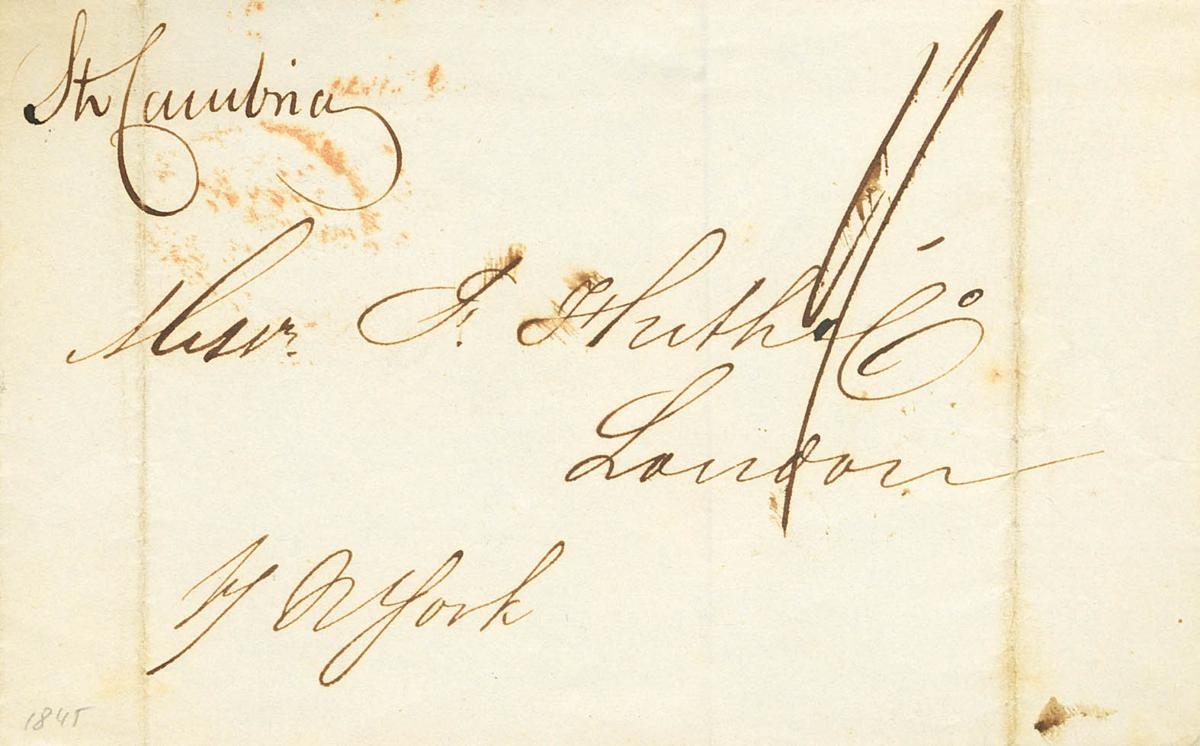 Str Cambria
Messrs. F. Huth & Co
London
N York
1845